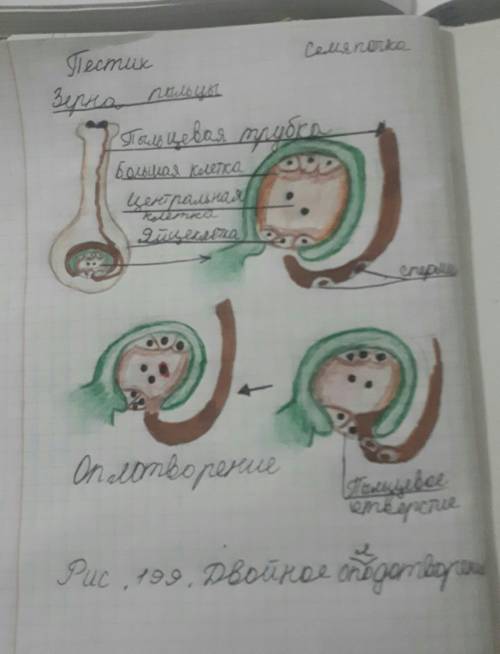 Пестик
Семяпочка
Зерна пыльцы
Пыльцевая трубка
Большая клетка
Центральная
клетка
Яйцеклетка
сперми
Оплотворение
Пыльцевое
отверстие
Рис. 199. Двойное оплодотворение